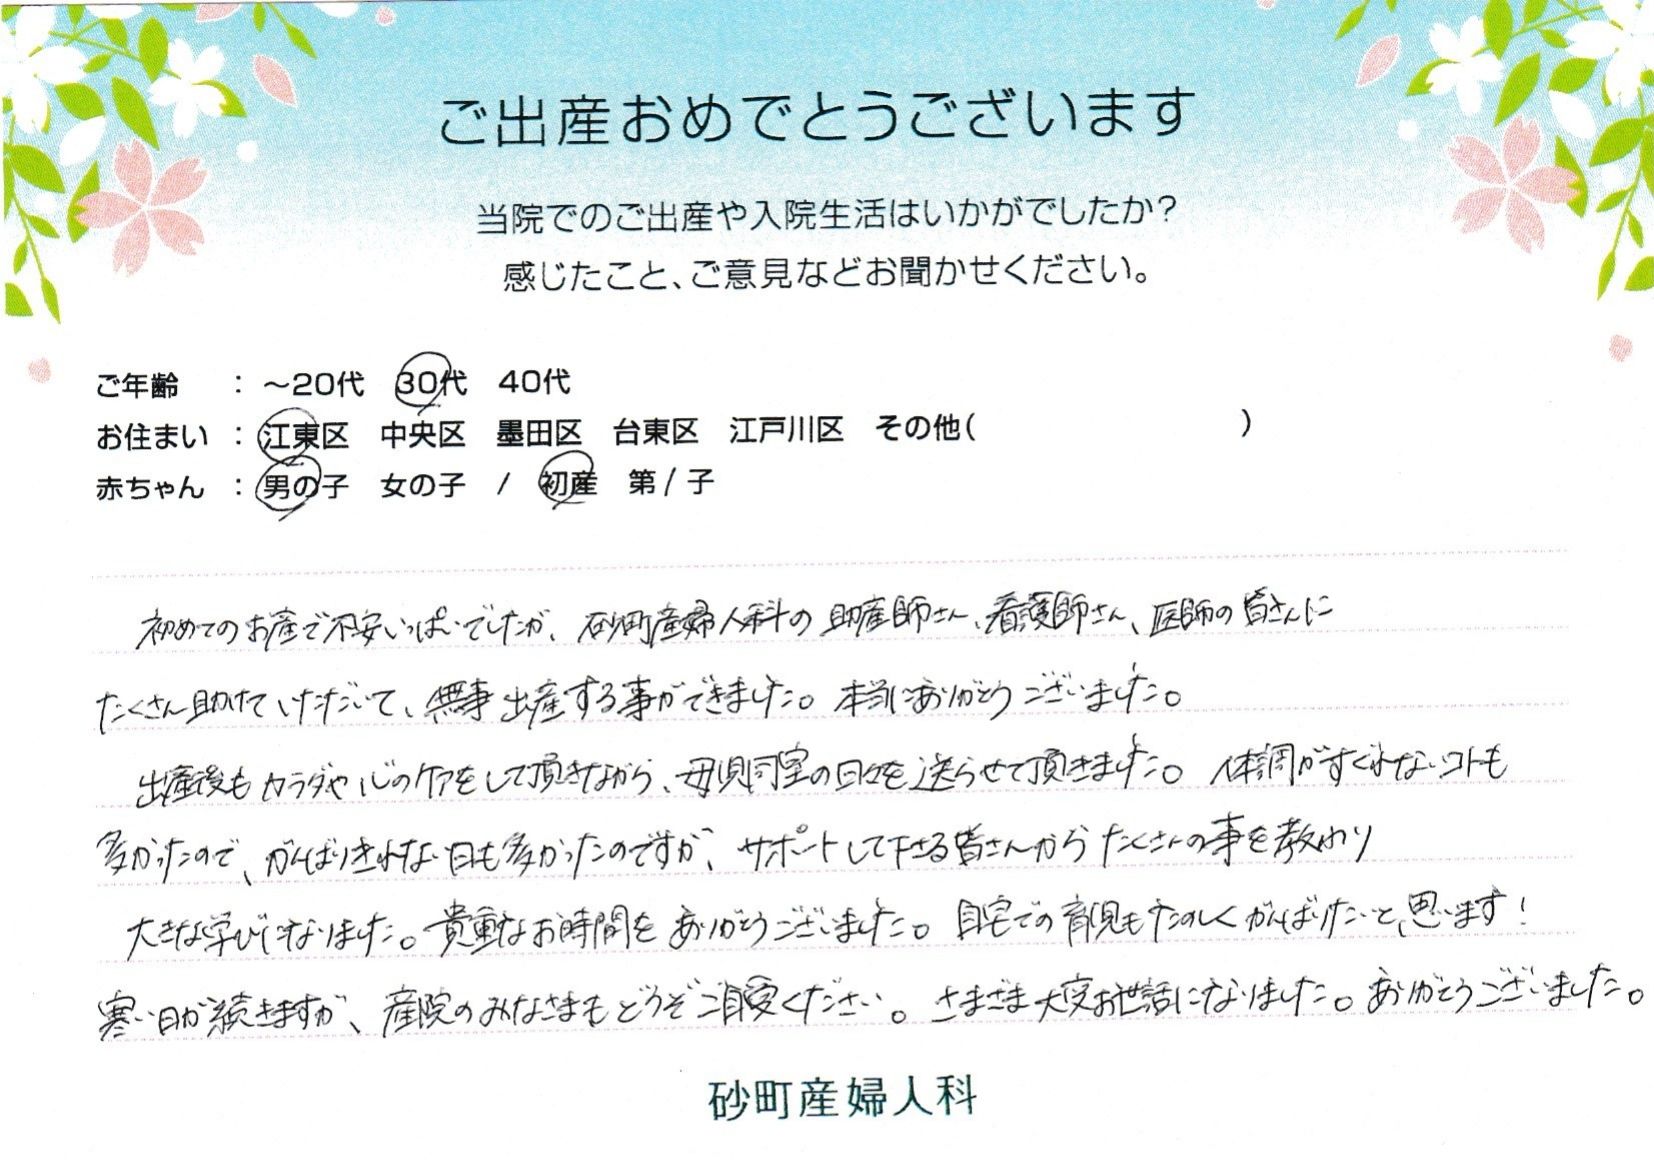 ご出産おめでとうございます
当院でのご出産や入院生活はいかがでしたか?
感じたこと、ご意見などお聞かせください。
ご年齢 : ~20代 30代 40代
お住まい : 江東区 中央区 墨田区 台東区 江戸川区 その他( )
赤ちゃん : 男の子 女の子 / 初産 第1子
初めてのお産で不安いっぱいでしたが、砂町産婦人科の助産師さん、看護師さん、医師の皆さんに
たくさん助けていただいて、無事出産する事ができました。本当にありがとうございました。
出産後もカラダや心のケアをして頂きながら、母児同室の日々を送らせて頂きました。体調がすぐれないコトも
多かったので、がんばりきれない日も多かったのですが、サポートして下さる皆さんからたくさんの事を教わり
大きな学びになりました。貴重なお時間をありがとうございました。自宅での育児もたのしくがんばりたいと思います!
寒い日が続きますが、産院のみなさまもどうぞご自愛ください。さまざま大変お世話になりました。ありがとうございました。
砂町産婦人科